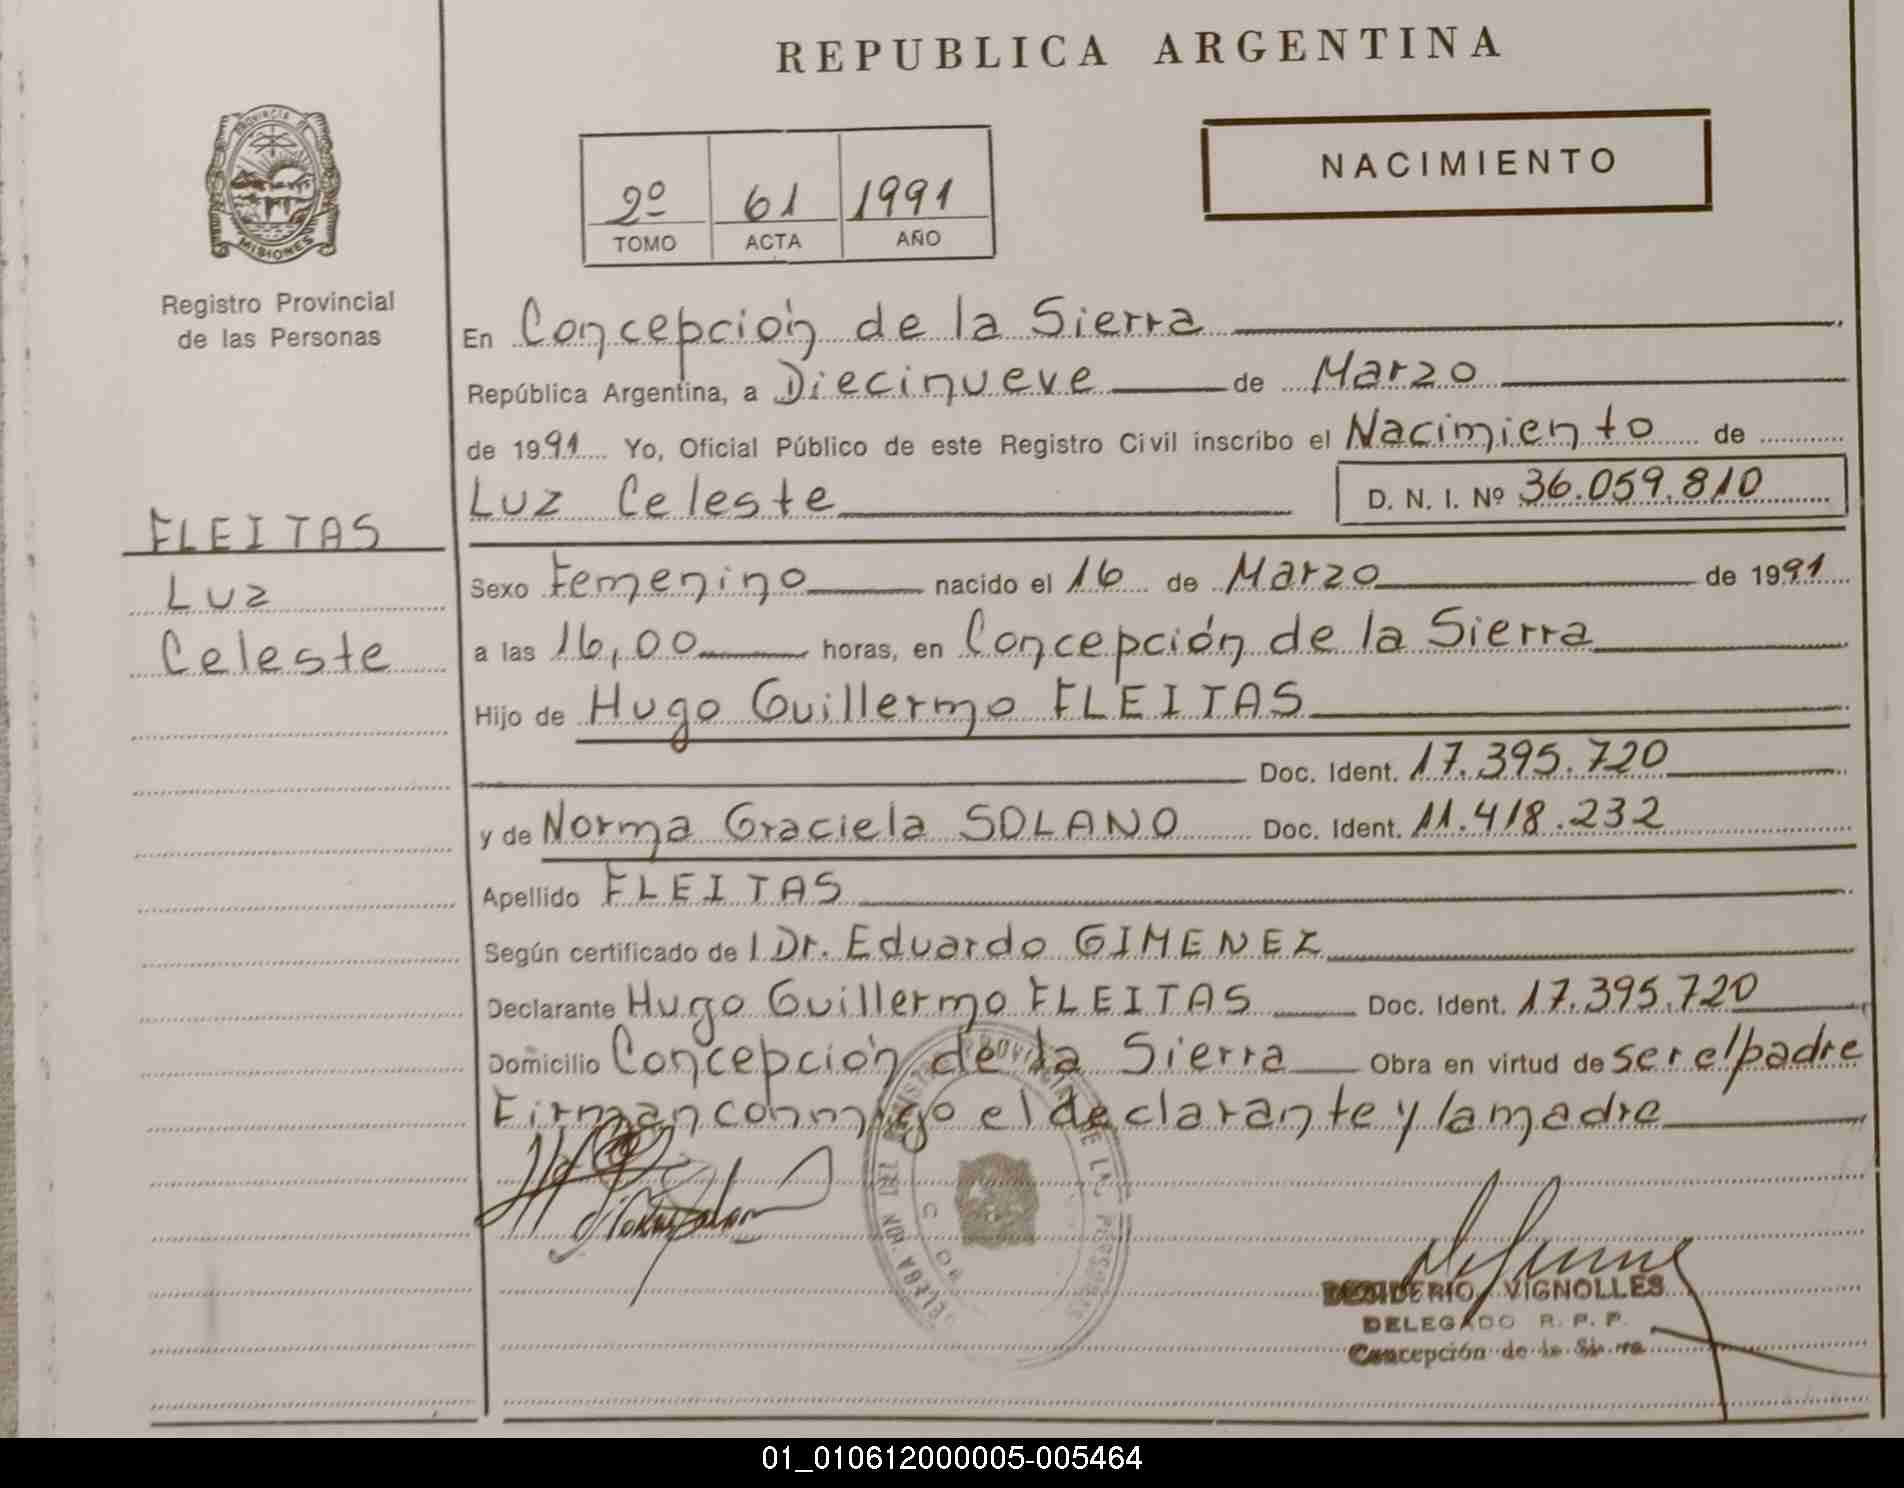 REPUBLICA ARGENTINA
PROVINCIA DE
MISIONES
Registro Provincial
de las Personas
2º 61 1991
TOMO ACTA AÑO
NACIMIENTO
FLEITAS
Luz
Celeste
En Concepción de la Sierra
República Argentina, a Diecinueve de Marzo
de 1991 Yo, Oficial Público de este Registro Civil inscribo el Nacimiento de
Luz Celeste D. N. I. Nº 36.059.810
Sexo Femenino nacido el 16 de Marzo de 1991
a las 16,00 horas, en Concepción de la Sierra
Hijo de Hugo Guillermo FLEITAS
Doc. Ident. 17.395.720
y de Norma Graciela SOLANO Doc. Ident. 11.418.232
Apellido FLEITAS
Según certificado de l Dr. Eduardo GIMENEZ
Declarante Hugo Guillermo FLEITAS Doc. Ident. 17.395.720
Domicilio Concepción de la Sierra Obra en virtud de ser el padre
Firman conmigo el declarante y la madre
DESIDERIO VIGNOLLES
DELEGADO R. P. P.
Concepción de la Sierra
01_010612000005-005464